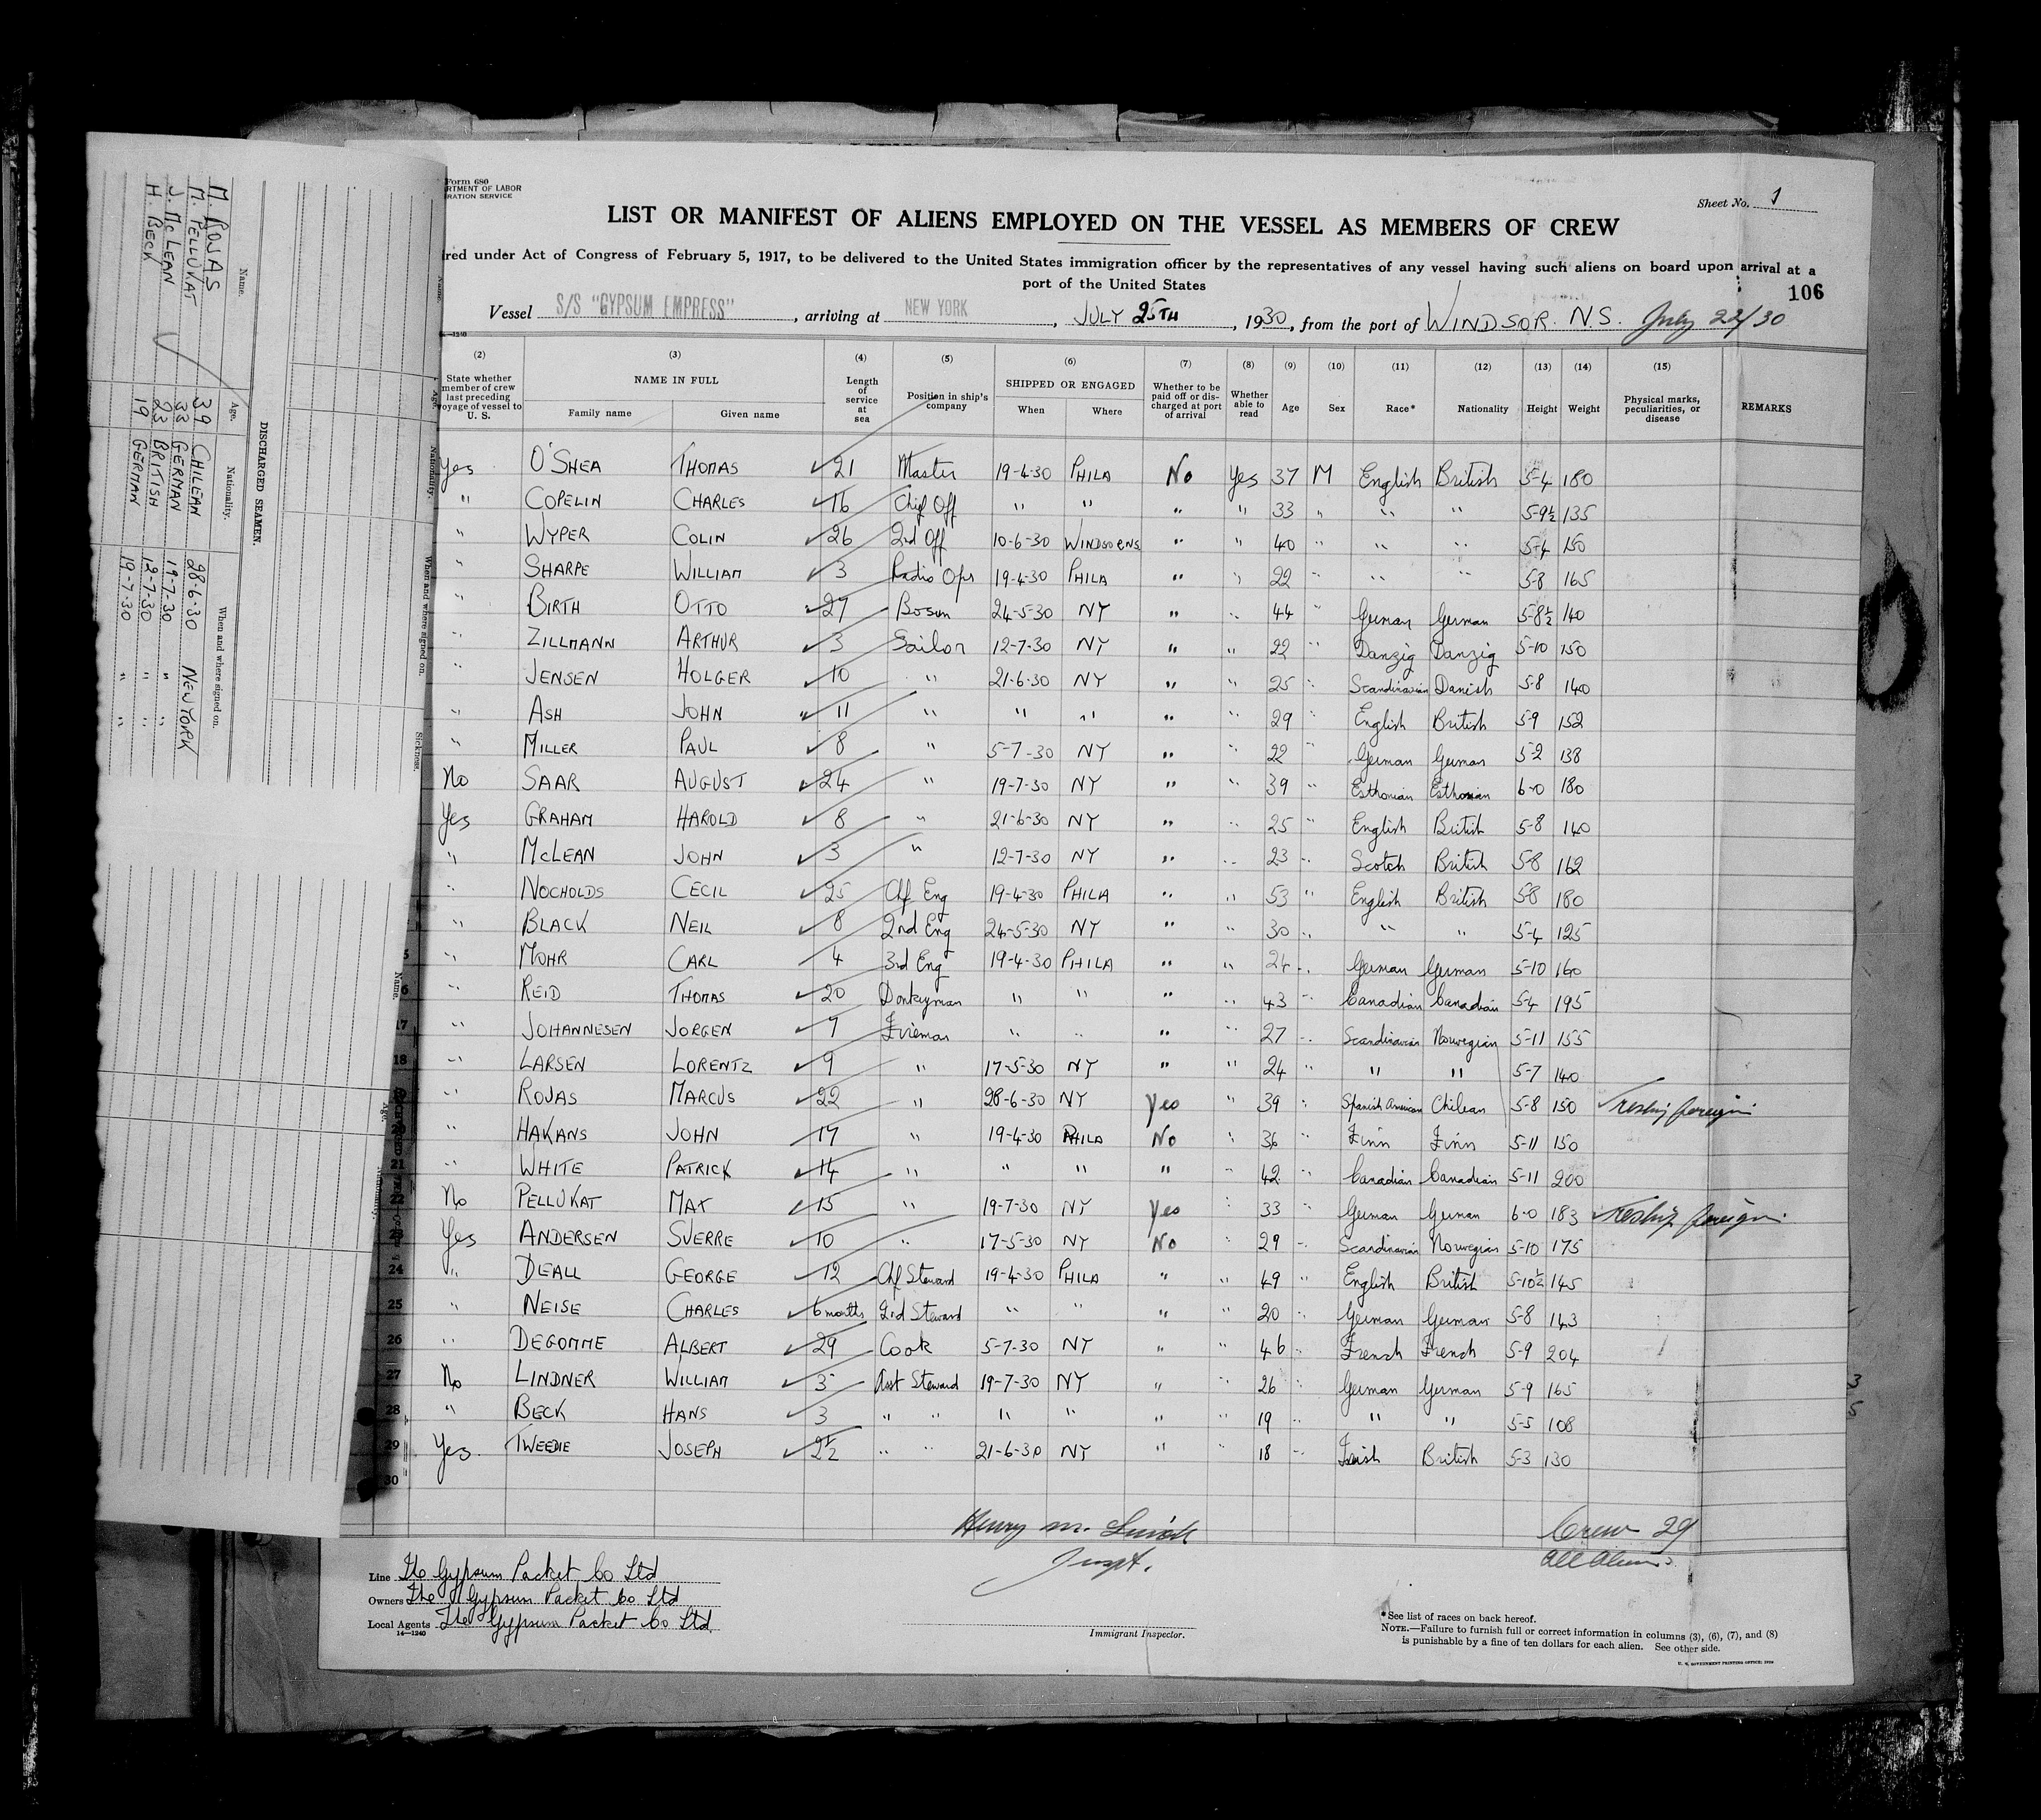 Form 680
RTMENT OF LABOR
RATION SERVICE
Sheet No. 1
LIST OR MANIFEST OF ALIENS EMPLOYED ON THE VESSEL AS MEMBERS OF CREW
red under Act of Congress of February 5, 1917, to be delivered to the United States immigration officer by the representatives of any vessel having such aliens on board upon arrival at a
port of the United States
106
Vessel S/S "GYPSUM EMPRESS", arriving at NEW YORK, JULY 25TH, 1930, from the port of WINDSOR. N.S. July 22/30
(2) (3) (4) (5) (6) (7) (8) (9) (10) (11) (12) (13) (14) (15)
State whether member of crew last preceding voyage of vessel to U. S. NAME IN FULL Family name Given name Length of service at sea Position in ship's company SHIPPED OR ENGAGED When Where Whether to be paid off or discharged at port of arrival Whether able to read Age Sex Race* Nationality Height Weight Physical marks, peculiarities, or disease REMARKS
Yes O'SHEA THOMAS 21 Master 19-4-30 PHILA No Yes 37 M English British 5-4 180
" COPELIN CHARLES 16 Chief Off " " " " 33 " " " 5-9½ 135
" WYPER COLIN 26 2nd Off 10-6-30 WINDSOR NS " " 40 " " " 5-4 150
" SHARPE WILLIAM 3 Radio Opr 19-4-30 PHILA " " 22 " " " 5-8 165
" BIRTH OTTO 27 Bosun 24-5-30 NY " " 44 " German German 5-8½ 140
" ZILLMANN ARTHUR 3 Sailor 12-7-30 NY " " 22 " Danzig Danzig 5-10 150
" JENSEN HOLGER 10 " 21-6-30 NY " " 25 " Scandinavian Danish 5-8 140
" ASH JOHN 11 " " " " " 29 " English British 5-9 152
" MILLER PAUL 8 " 5-7-30 NY " " 22 " German German 5-2 138
No SAAR AUGUST 24 " 19-7-30 NY " " 39 " Esthonian Esthonian 6-0 180
Yes GRAHAM HAROLD 8 " 21-6-30 NY " " 25 " English British 5-8 140
" McLEAN JOHN 3 " 12-7-30 NY " " 23 " Scotch British 5-8 162
" NOCHOLDS CECIL 25 Chf Eng 19-4-30 PHILA " " 53 " English British 5-8 180
" BLACK NEIL 8 2nd Eng 24-5-30 NY " " 30 " " " 5-4 125
5 " MOHR CARL 4 3rd Eng 19-4-30 PHILA " " 24 " German German 5-10 160
6 " REID THOMAS 20 Donkeyman " " " " 43 " Canadian Canadian 5-4 195
17 " JOHANNESEN JORGEN 7 Fireman " " " " 27 " Scandinavian Norwegian 5-11 155
18 " LARSEN LORENTZ 9 " 17-5-30 NY " " 24 " " " 5-7 140
" ROJAS MARCUS 22 " 28-6-30 NY Yes " 39 " Spanish American Chilean 5-8 150 Reship foreign
" HAKANS JOHN 17 " 19-4-30 PHILA No " 36 " Finn Finn 5-11 150
21 " WHITE PATRICK 14 " " " " " 42 " Canadian Canadian 5-11 200
22 No PELLUKAT MAX 15 " 19-7-30 NY Yes " 33 " German German 6-0 183 Reship foreign
23 Yes ANDERSEN SVERRE 10 " 17-5-30 NY No " 29 " Scandinavian Norwegian 5-10 175
24 " DEALL GEORGE 12 Chf Steward 19-4-30 PHILA " " 49 " English British 5-10½ 145
25 " NEISE CHARLES 6 months 2nd Steward " " " " 20 " German German 5-8 143
26 " DEGOMME ALBERT 29 Cook 5-7-30 NY " " 46 " French French 5-9 204
27 No LINDNER WILLIAM 5 Asst Steward 19-7-30 NY " " 26 " German German 5-9 165
28 " BECK HANS 3 " " " " " " 19 " " " 5-5 108
29 Yes TWEEDIE JOSEPH 2½ " " 21-6-30 NY " " 18 " Irish British 5-3 130
30
Henry M.
Inspt.
Crew 29
All Aliens
Line The Gypsum Packet Co Ltd
Owners The Gypsum Packet Co Ltd
Local Agents The Gypsum Packet Co Ltd.
14—1240
Immigrant Inspector.
*See list of races on back hereof.
NOTE.—Failure to furnish full or correct information in columns (3), (6), (7), and (8)
is punishable by a fine of ten dollars for each alien. See other side.
U. S. GOVERNMENT PRINTING OFFICE: 1929
DISCHARGED SEAMEN.
Name. Age. Nationality. When and where signed on.
M. ROJAS 39 CHILEAN 28-6-30 NEW YORK
M. PELLUKAT 33 GERMAN 19-7-30 "
J. McLEAN 23 BRITISH 12-7-30 "
H. BECK 19 GERMAN 19-7-30 "
Name. Age. Nationality. When and where signed on. Sickness.